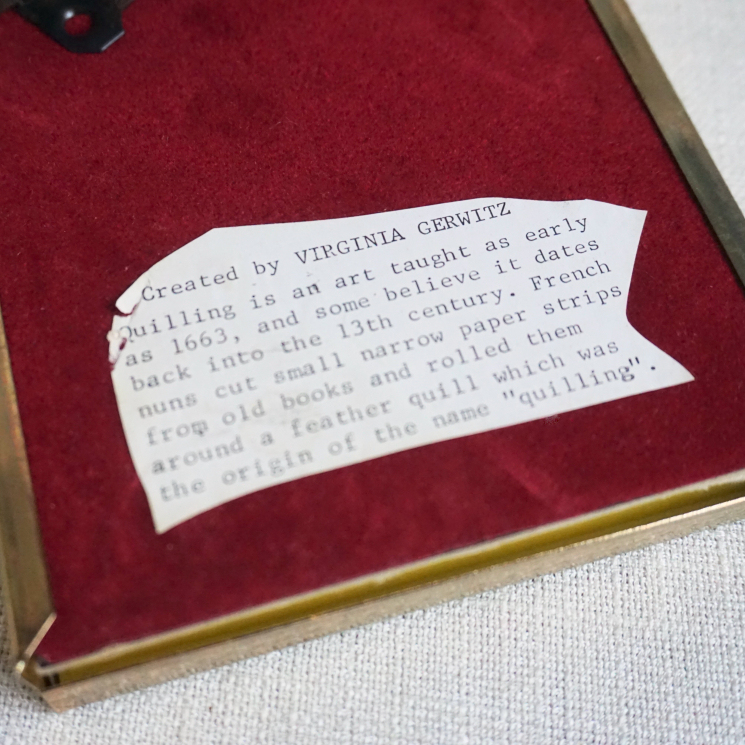 Created by VIRGINIA GERWITZ
Quilling is an art taught as early
as 1663, and some believe it dates
back into the 13th century. French
nuns cut small narrow paper strips
from old books and rolled them
around a feather quill which was
the origin of the name "quilling".